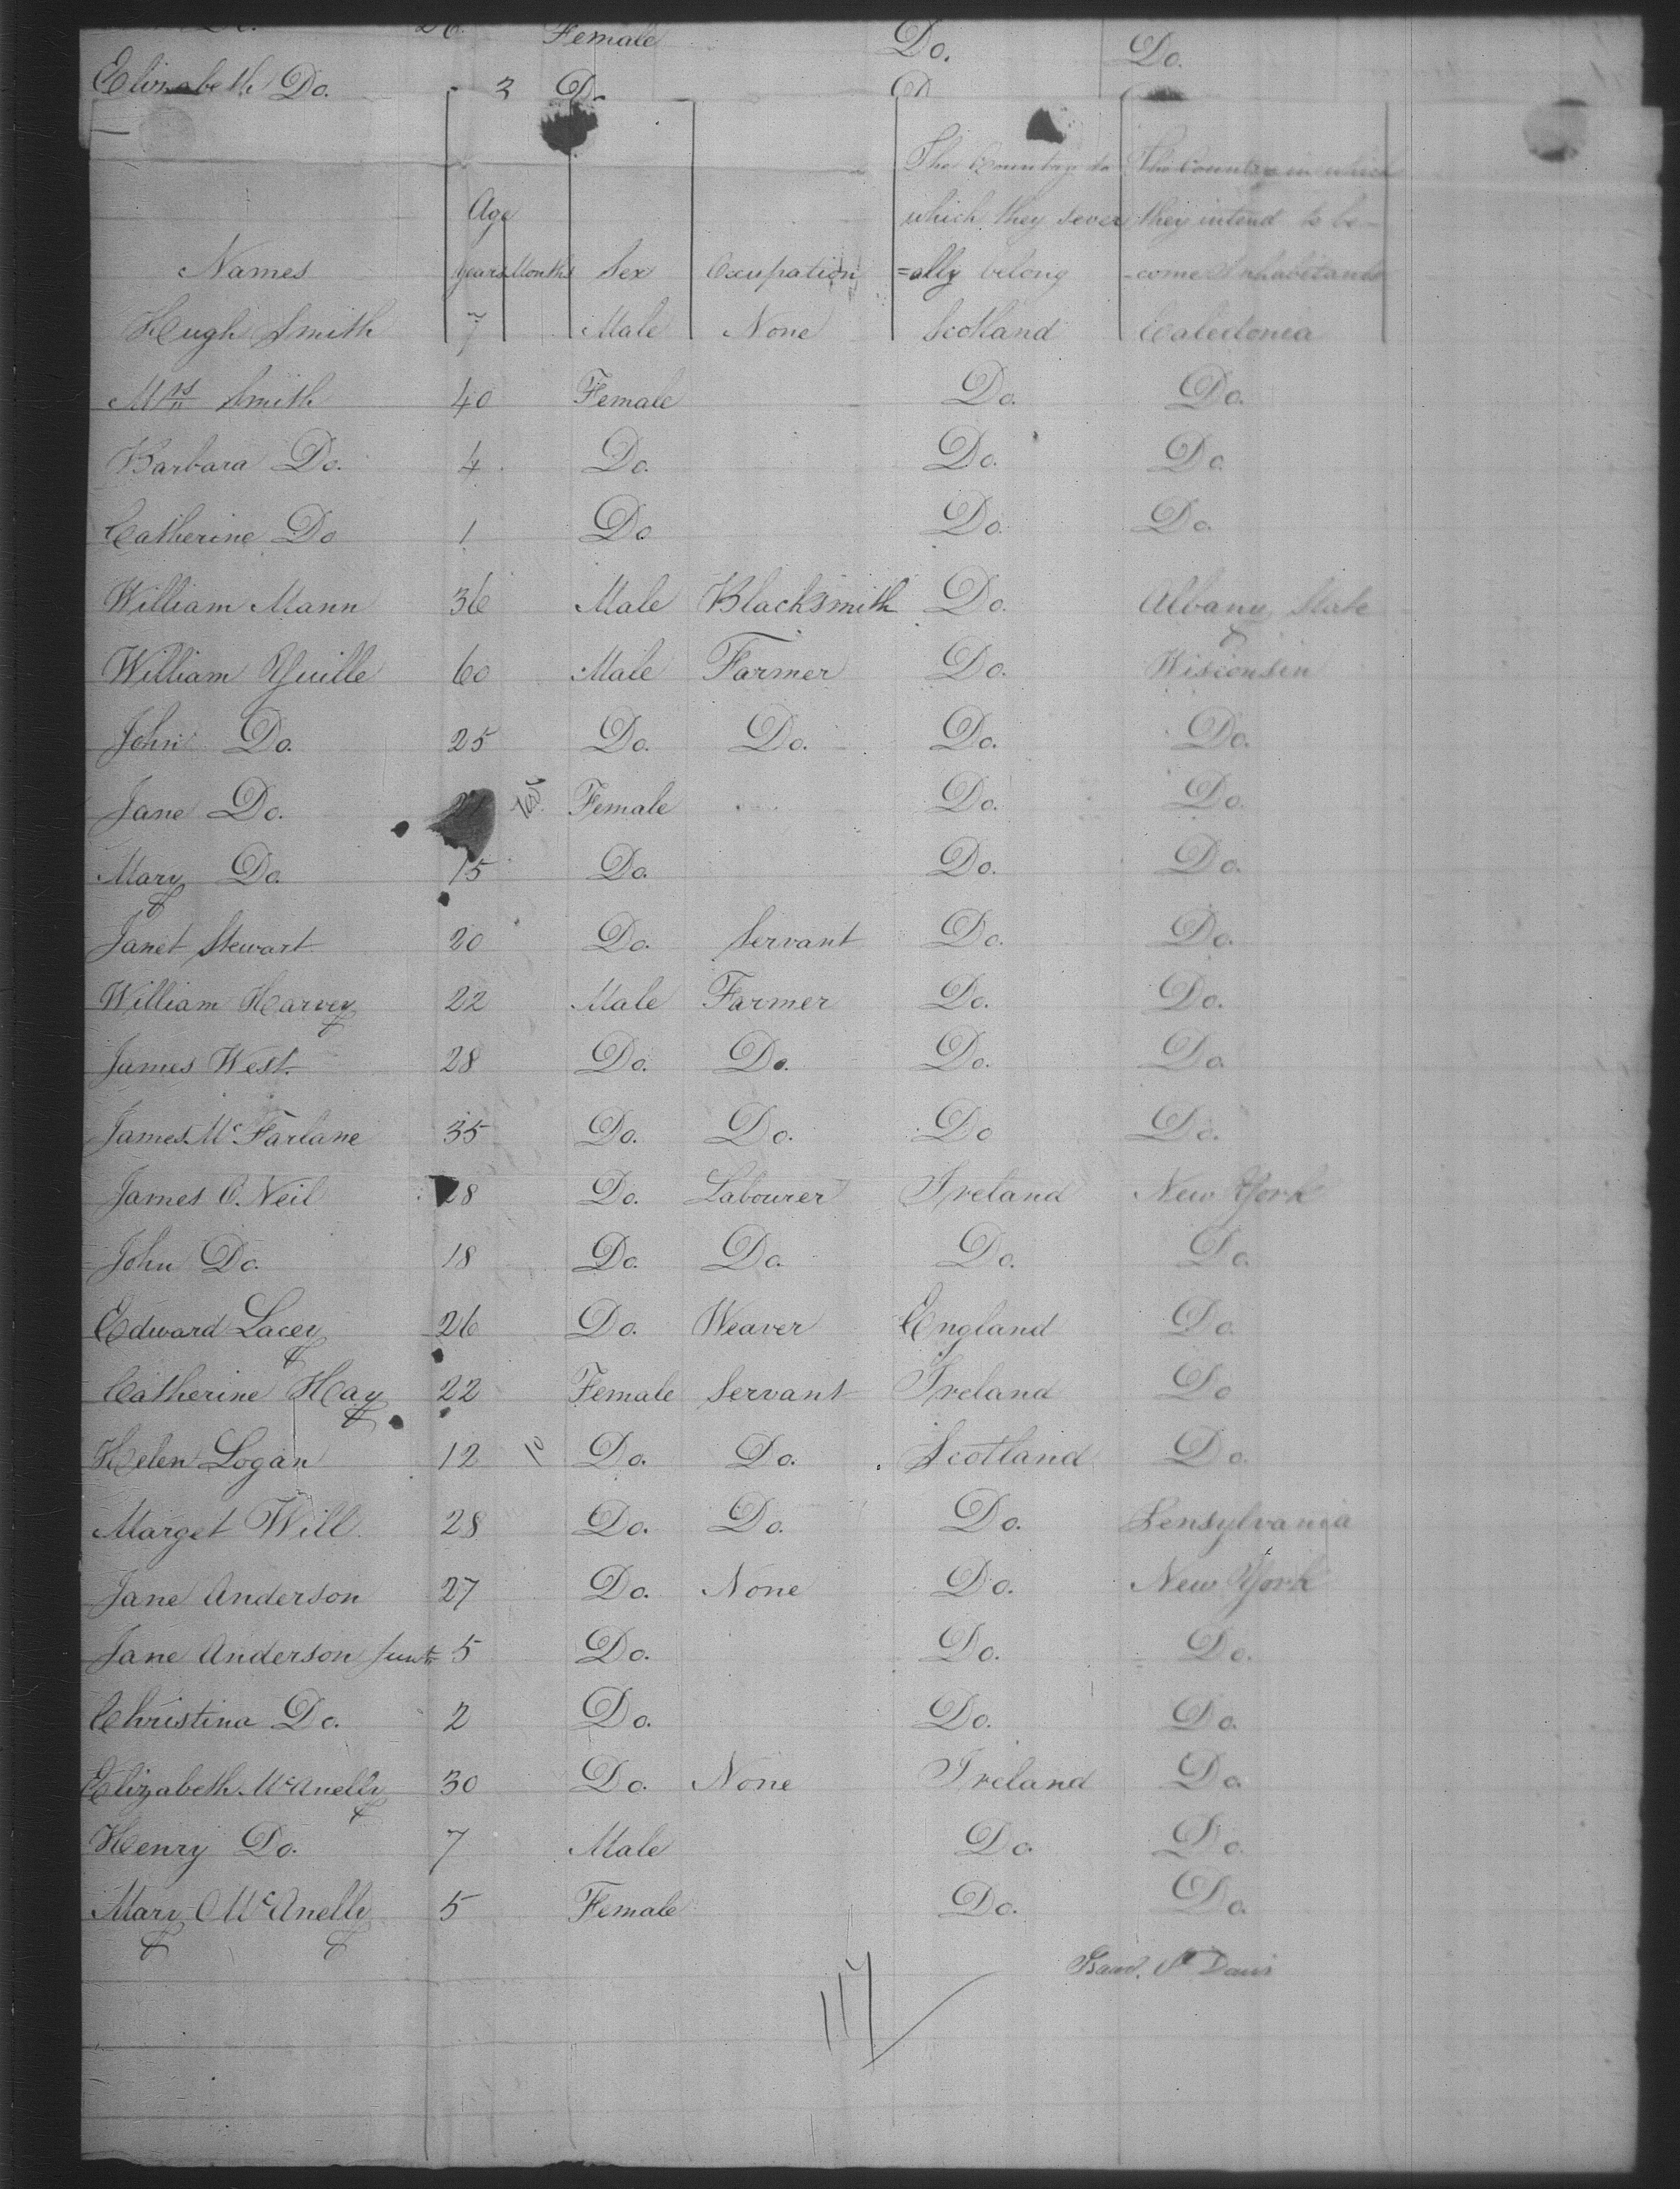 Female Do. Do.
Elizabeth Do. 3 Do Do
The Country to The Country in which
Age which they sever they intend to be-
Names years Months Sex Occupation =ally belong -come Inhabitants
Hugh Smith 7 Male None Scotland Caledonia
Mrs Smith 40 Female Do. Do.
Barbara Do. 4 Do. Do. Do
Catherine Do 1 Do Do. Do.
William Mann 36 Male Blacksmith Do. Albany State
William Yuille 60 Male Farmer Do. Wisconsin
John Do. 25 Do. Do. Do. Do.
Jane Do. Female Do. Do.
Mary Do. 15 Do. Do. Do.
Janet Stewart 20 Do. Servant Do. Do.
William Harvey 22 Male Farmer Do. Do.
James West. 28 Do. Do. Do. Do
James McFarlane 35 Do. Do. Do Do.
James O.Neil 28 Do. Labourer Ireland New York
John Do. 18 Do. Do. Do. Do.
Edward Lacey 26 Do. Weaver England Do.
Catherine Hay 22 Female Servant Ireland Do
Helen Logan 12 10 Do. Do. Scotland Do.
Marget Will 28 Do. Do. Do. Pensylvania
Jane Anderson 27 Do. None Do. New York
Jane Anderson Junr 5 Do. Do. Do.
Christina Do. 2 Do. Do. Do.
Elizabeth McAnelly 30 Do. None Ireland Do.
Henry Do. 7 Male Do. Do.
Mary McAnelly 5 Female Do. Do.
Davis
117